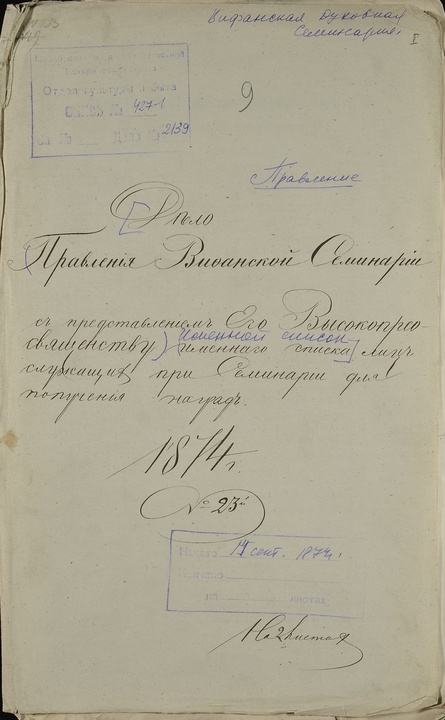 Вифанская духовная
Семинария
I
Отдел культуры и быта
Опись № 427-1
Дело № 2139
9
Правление
Дѣло
Правленія Виѳанской Семинаріи
съ представленіемъ Его Высокопрео-
священству именной список
именнаго списка лицъ
служащихъ при Семинаріи для
полученія наградъ.
1874 г.
№ 23й
Начато 14 сент. 1874 г.
На листах